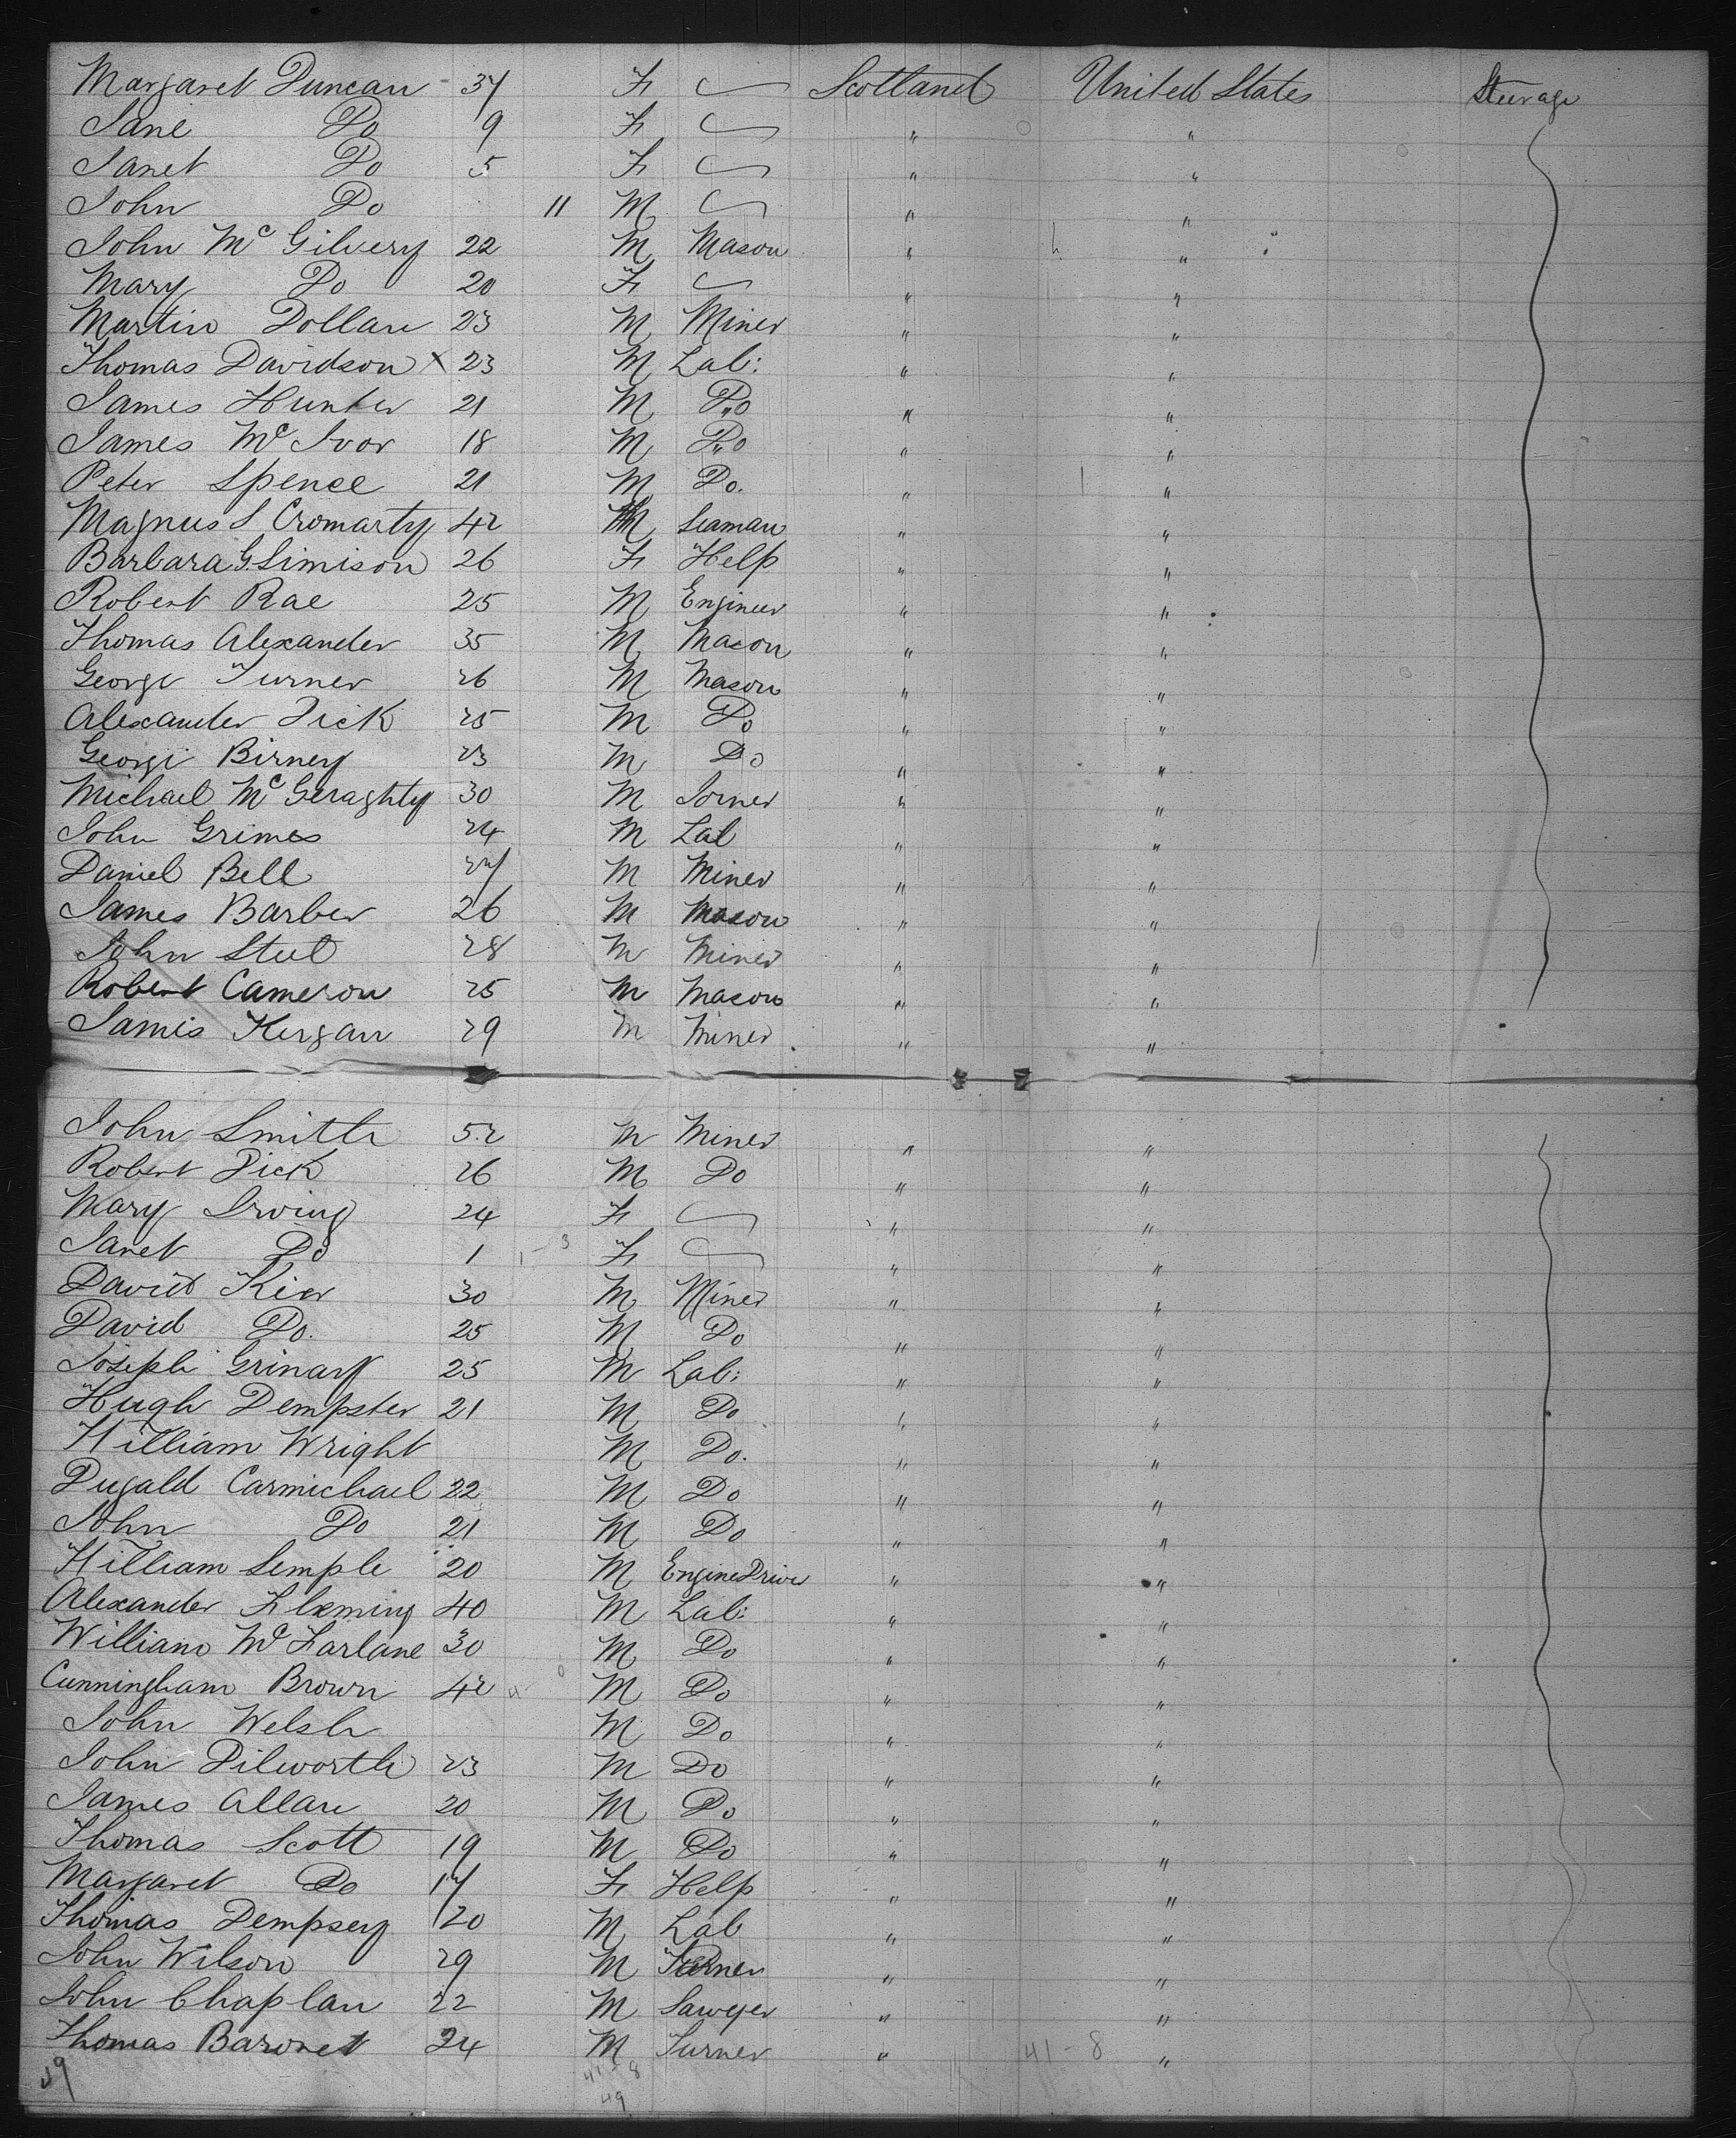 Margaret Duncan 37 F Scotland United States Steerage
Jane Do 9 F " "
Janet Do 5 F " "
John Do 11 M " "
John Mc Gilvery 22 M Mason " "
Mary Do 20 F " "
Martin Dollan 23 M Miner " "
Thomas Davidson X 23 M Lab: " "
James Hunter 21 M Do " "
James Mc Ivor 18 M Do " "
Peter Spence 21 M Do. " "
Magnus S Cromarty 42 M Seaman " "
Barbara G. Simison 26 F Help " "
Robert Rae 25 M Engineer " "
Thomas Alexander 35 M Mason " "
George Turner 26 M Mason " "
Alexander Dick 25 M Do " "
George Birney 23 M Do " "
Michael Mc Geraghty 30 M Joiner " "
John Grimes 24 M Lab " "
Daniel Bell 27 M Miner " "
James Barber 26 M Mason " "
John Steel 28 M Miner " "
Robert Cameron 25 M Mason " "
James Kergan 29 M Miner " "
John Smith 52 M Miner " "
Robert Dick 26 M Do " "
Mary Irving 24 F " "
Janet Do 1 F " "
David Kier 30 M Miner " "
David Do. 25 M Do " "
Joseph Grinary 25 M Lab: " "
Hugh Dempster 21 M Do " "
William Wright M Do. " "
Dugald Carmichael 22 M Do " "
John Do 21 M Do " "
William Semple 20 M Engine Driver " "
Alexander Fleming 40 M Lab: " "
William Mc Farlane 30 M Do " "
Cunningham Brown 42 M Do " "
John Welsh M Do " "
John Dilworth 23 M Do " "
James Allan 20 M Do " "
Thomas Scott 19 M Do " "
Margaret Do 17 F Help " "
Thomas Dempsey 20 M Lab " "
John Wilson 29 M Turner " "
John Chaplan 22 M Sawyer " "
Thomas Baronet 24 M Turner " 41-8 "
49 41-8
49